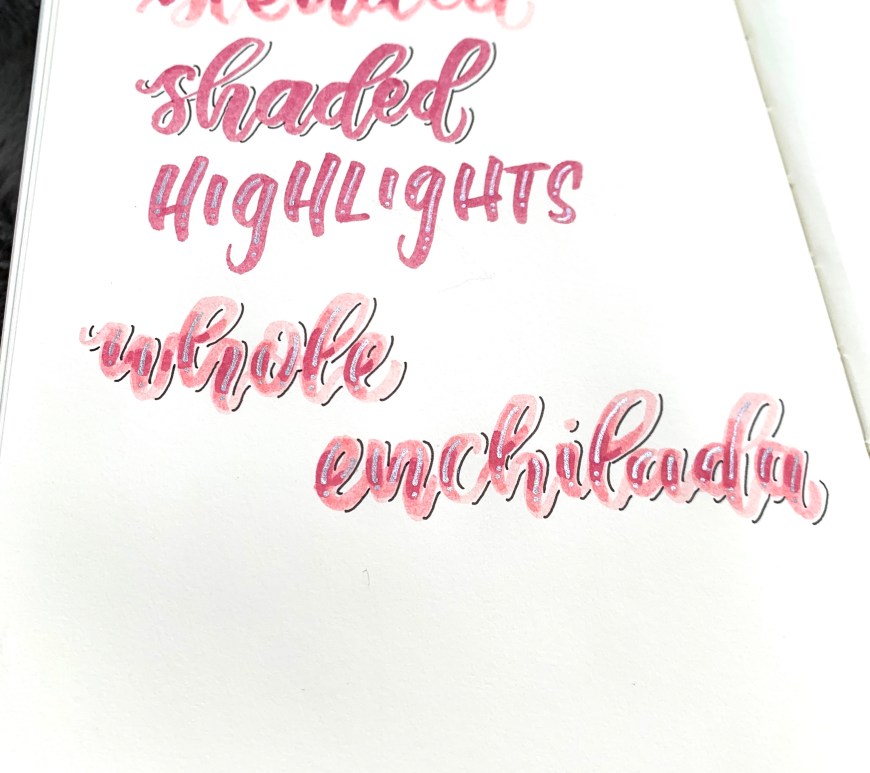 blended
shaded
HIgHLIgHTS
whole
enchilada